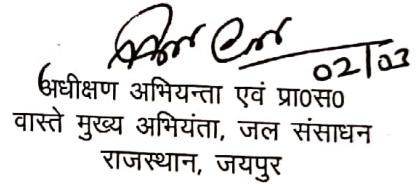 02/03
अधीक्षण अभियन्ता एवं प्रा०स०
वास्ते मुख्य अभियंता, जल संसाधन
राजस्थान, जयपुर